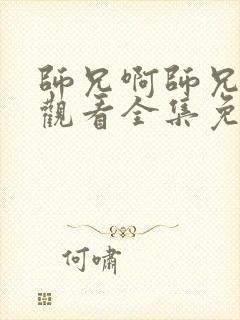 師兄啊師兄
觀看全集免
何嘯